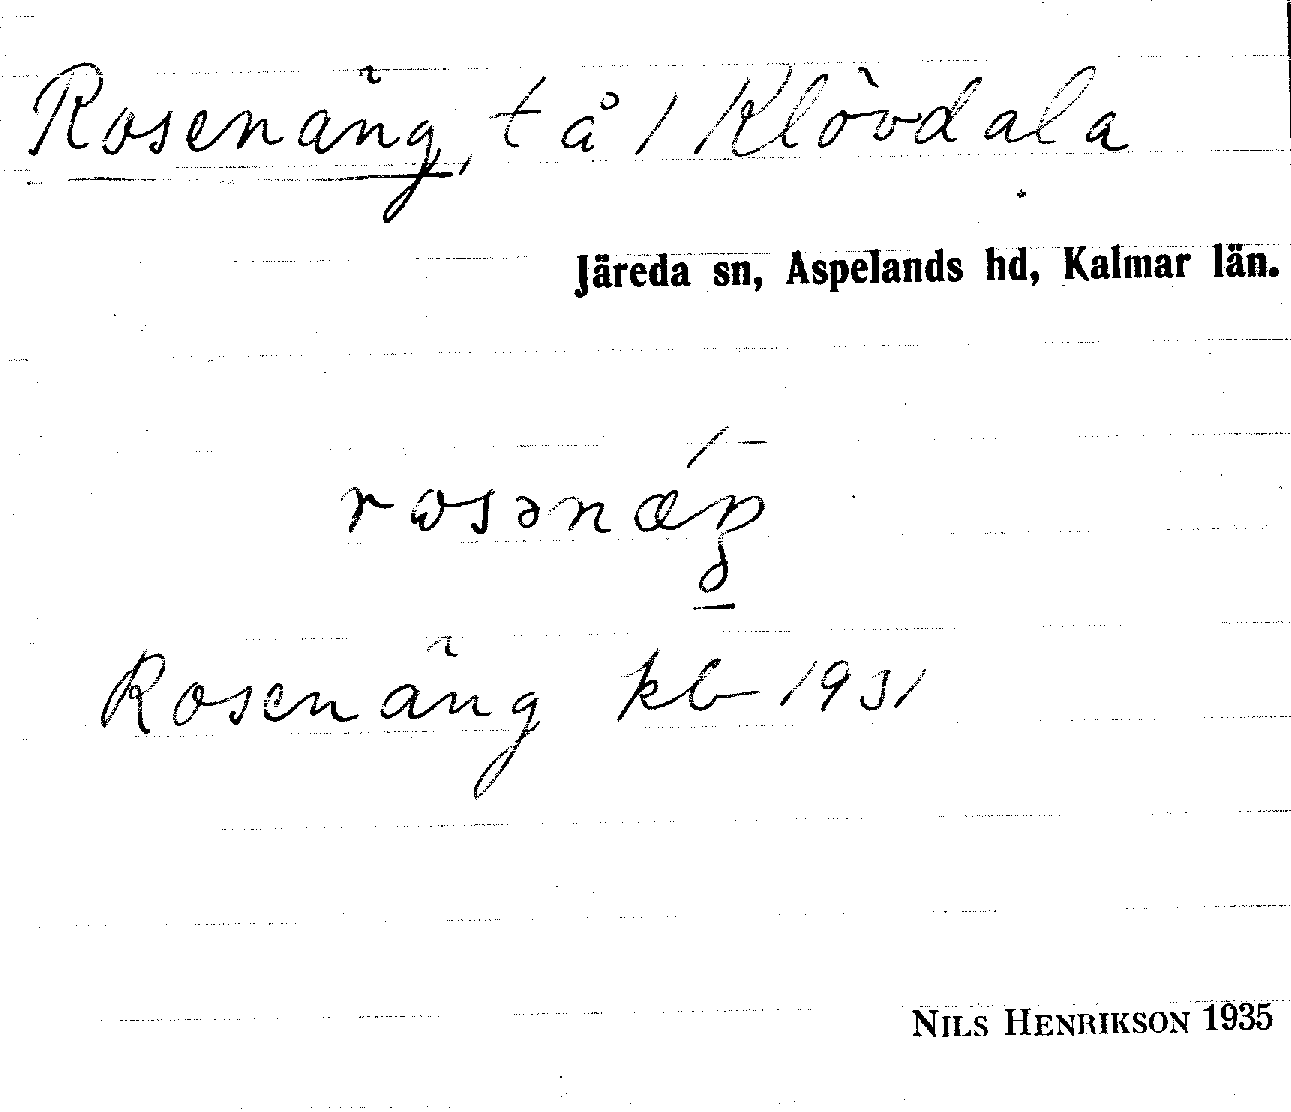 Rosenäng, t å 1 Klövdala
Järeda sn, Aspelands hd, Kalmar län.
rosənæŋ
Rosenäng kb 1931
NILS HENRIKSON 1935